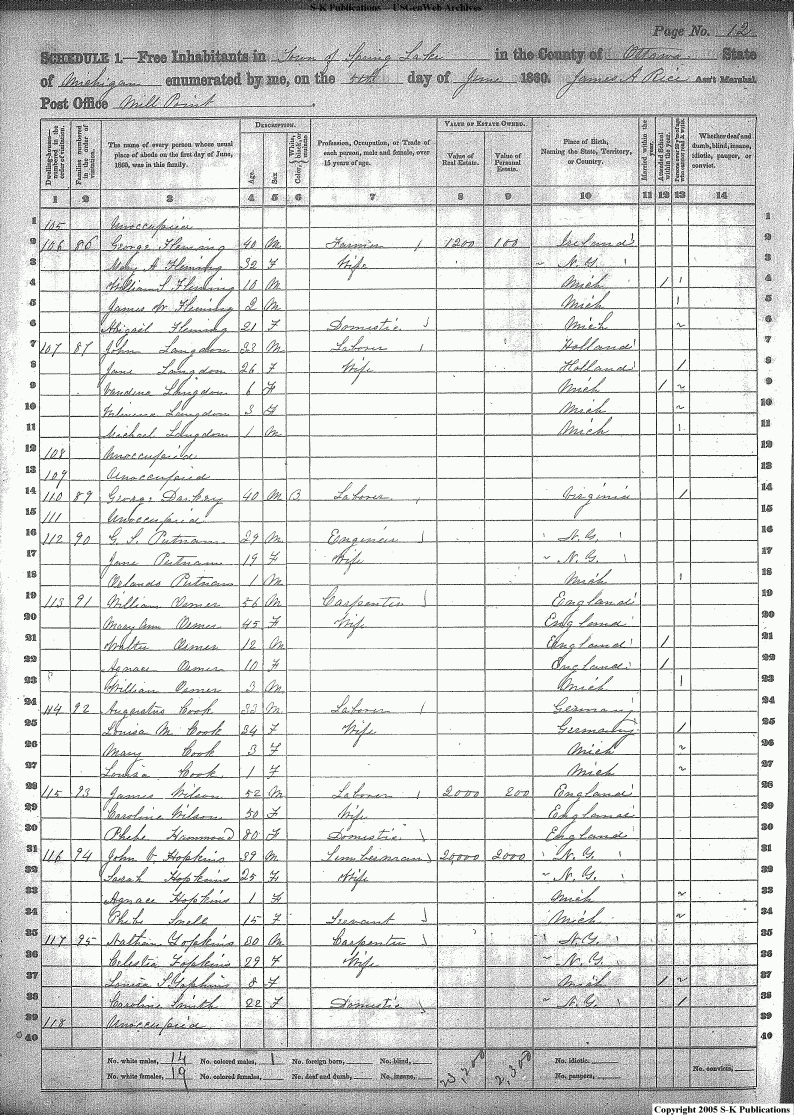 S-K Publications – USGenWeb Archives
Page No. 12
SCHEDULE 1.—Free Inhabitants in Town of Spring Lake in the County of Ottawa State
of Michigan enumerated by me, on the day of June 1860. James A Rice Ass't Marshal
Post Office Mill Point
Dwelling-houses numbered in the order of visitation.
Families numbered in the order of visitation.
The name of every person whose usual place of abode on the first day of June, 1860, was in this family.
DESCRIPTION.
Age.
Sex.
Color, White, black, or mulatto.
Profession, Occupation, or Trade of each person, male and female, over 15 years of age.
VALUE OF ESTATE OWNED.
Value of Real Estate.
Value of Personal Estate.
Place of Birth, Naming the State, Territory, or Country.
Married within the year.
Attended School within the year.
Whether deaf and dumb, blind, insane, idiotic, pauper, or convict.
1 2 3 4 5 6 7 8 9 10 11 12 13 14
1 105 Unoccupied 1
2 106 86 George Fleming 40 M Farmer 1200 100 Ireland 2
3 Mary A Fleming 32 F Wife N.Y. 3
4 William S Fleming 10 M Mich 1 4
5 James W Fleming 2 M Mich 5
6 Abigail Fleming 21 F Domestic Mich 6
7 107 87 John Langdon 33 M Laborer Holland 7
8 Jane Langdon 26 F Wife Holland 1 8
9 Langdon 6 F Mich 1 9
10 Langdon 3 F Mich 10
11 Michael Langdon 1 M Mich 11
12 108 Unoccupied 12
13 109 Unoccupied 13
14 110 89 George 40 M B Laborer Virginia 1 14
15 111 Unoccupied 15
16 112 90 G. S. Putnam 29 M Engineer N.Y. 16
17 Jane Putnam 19 F Wife N.Y. 17
18 Orlando Putnam 1 M Mich 18
19 113 91 William Osmer 56 M Carpenter England 19
20 Mary Ann Osmer 45 F Wife England 20
21 Walter Osmer 12 M England 1 21
22 Agnace Osmer 10 F England 1 22
23 William Osmer 3 M Mich 23
24 114 92 Augustus Cook 33 M Laborer Germany 24
25 Louisa M. Cook 34 F Wife Germany 1 25
26 Mary Cook 3 F Mich 26
27 Louisa Cook 1 F Mich 27
28 115 93 James Wilson 52 M Laborer 2000 200 England 28
29 Caroline Wilson 50 F Wife England 29
30 Phebe Hammond 80 F Domestic England 30
31 116 94 John C. Hopkins 39 M Lumberman 20,000 2000 N.Y. 31
32 Sarah Hopkins 25 F Wife N.Y. 32
33 Agnace Hopkins 1 F Mich 33
34 Phebe Snell 15 F Servant Mich 34
35 117 95 Nathan Hopkins 30 M Carpenter N.Y. 35
36 Celestia Hopkins 29 F Wife N.Y. 36
37 Louisa S Hopkins 8 F Mich 1 37
38 Caroline Smith 22 F Domestic N.Y. 1 38
39 118 Unoccupied 39
40 40
No. white males, 14 No. colored males, 1 No. foreign born, No. blind, 23,200 2,300 No. idiotic,
No. white females, 19 No. colored females, No. deaf and dumb, No. insane, No. paupers, No. convicts,
Copyright 2005 S-K Publications